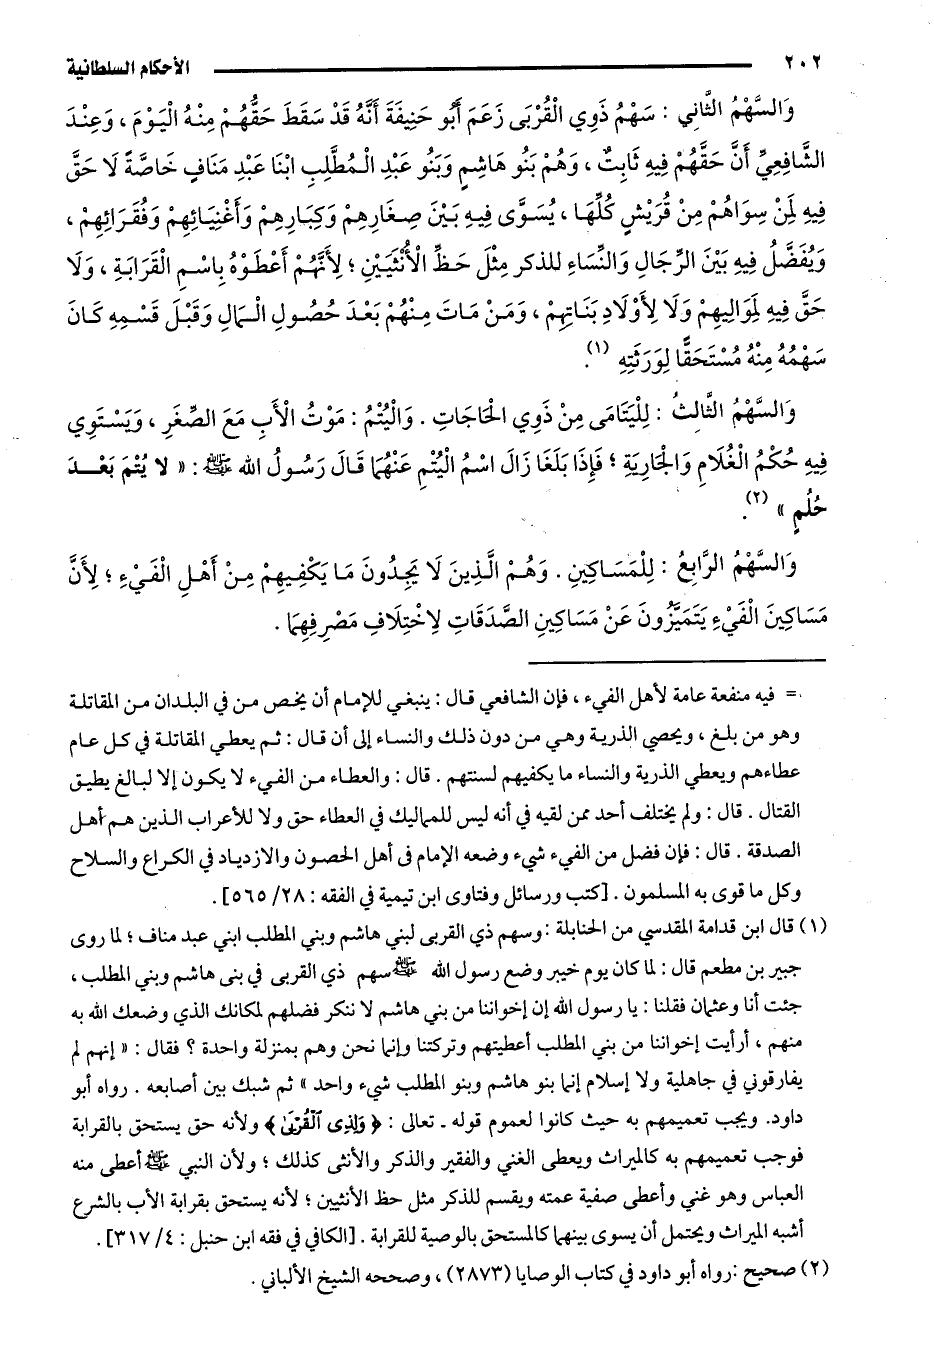 ٢٠٢ الأحكام السلطانية
وَالسَّهْمُ الثَّانِي : سَهْمُ ذَوِي الْقُرْبَى زَعَمَ أَبُو حَنِيفَةَ أَنَّهُ قَدْ سَقَطَ حَقُّهُمْ مِنْهُ الْيَوْمَ ، وَعِنْدَ
الشَّافِعِيِّ أَنَّ حَقَّهُمْ فِيهِ ثَابِتٌ ، وَهُمْ بَنُو هَاشِمٍ وَبَنُو عَبْدِ الْمُطَّلِبِ ابْنَا عَبْدِ مَنَافٍ خَاصَّةً لَا حَقَّ
فِيهِ لِمَنْ سِوَاهُمْ مِنْ قُرَيْشٍ كُلِّهَا ، يُسَوَّى فِيهِ بَيْنَ صِغَارِهِمْ وَكِبَارِهِمْ وَأَغْنِيَائِهِمْ وَفُقَرَائِهِمْ ،
وَيُفَضَّلُ فِيهِ بَيْنَ الرِّجَالِ وَالنِّسَاءِ للذكر مِثْلَ حَظِّ الْأُنْثَيَيْنِ ؛ لِأَنَّهُمْ أَعْطَوْهُ بِاسْمِ الْقَرَابَةِ ، وَلَا
حَقَّ فِيهِ لِمَوَالِيهِمْ وَلَا لِأَوْلَادِ بَنَاتِهِمْ ، وَمَنْ مَاتَ مِنْهُمْ بَعْدَ حُصُولِ الْمَالِ وَقَبْلَ قَسْمِهِ كَانَ
سَهْمُهُ مِنْهُ مُسْتَحَقًّا لِوَرَثَتِهِ (١).
وَالسَّهْمُ الثَّالثُ : لِلْيَتَامَى مِنْ ذَوِي الْحَاجَاتِ . وَالْيُتْمُ : مَوْتُ الْأَبِ مَعَ الصِّغَرِ ، وَيَسْتَوِي
فِيهِ حُكْمُ الْغُلَامِ وَالْجَارِيَةِ ؛ فَإِذَا بَلَغَا زَالَ اسْمُ الْيُتْمِ عَنْهُمَا قَالَ رَسُولُ الله ﷺ : « لا يُتْمَ بَعْدَ
حُلُمٍ » (٢).
وَالسَّهْمُ الرَّابِعُ : لِلْمَسَاكِينِ . وَهُمْ الَّذِينَ لَا يَجِدُونَ مَا يَكْفِيهِمْ مِنْ أَهْلِ الْفَيْءِ ؛ لِأَنَّ
مَسَاكِينَ الْفَيْءِ يَتَمَيَّزُونَ عَنْ مَسَاكِينِ الصَّدَقَاتِ لِاخْتِلَافِ مَصْرِفِهِمَا .
= فيه منفعة عامة لأهل الفيء ، فإن الشافعي قال : ينبغي للإمام أن يخص من في البلدان من المقاتلة
وهو من بلغ ، ويحصي الذرية وهي من دون ذلك والنساء إلى أن قال : ثم يعطي المقاتلة في كل عام
عطاءهم ويعطي الذرية والنساء ما يكفيهم لسنتهم . قال : والعطاء من الفيء لا يكون إلا لبالغ يطيق
القتال . قال : ولم يختلف أحد ممن لقيه في أنه ليس للمماليك في العطاء حق ولا للأعراب الذين هم أهل
الصدقة . قال : فإن فضل من الفيء شيء وضعه الإمام فى أهل الحصون والازدياد في الكراع والسلاح
وكل ما قوى به المسلمون . [كتب ورسائل وفتاوى ابن تيمية في الفقه : ٢٨/ ٥٦٥] .
(١) قال ابن قدامة المقدسي من الحنابلة :وسهم ذي القربى لبني هاشم وبني المطلب ابني عبد مناف ؛ لما روى
جبير بن مطعم قال : لما كان يوم خيبر وضع رسول الله ﷺ سهم ذي القربى في بنى هاشم وبني المطلب ،
جئت أنا وعثمان فقلنا : يا رسول الله إن إخواننا من بني هاشم لا ننكر فضلهم لمكانك الذي وضعك الله به
منهم ، أرأيت إخواننا من بني المطلب أعطيتهم وتركتنا وإنما نحن وهم بمنزلة واحدة ؟ فقال : « إنهم لم
يفارقوني في جاهلية ولا إسلام إنما بنو هاشم وبنو المطلب شيء واحد » ثم شبك بين أصابعه . رواه أبو
داود. ويجب تعميمهم به حيث كانوا لعموم قوله ـ تعالى : ﴿ وَلِذِى ٱلْقُرْبَىٰ ﴾ ولأنه حق يستحق بالقرابة
فوجب تعميمهم به كالميراث ويعطى الغني والفقير والذكر والأنثى كذلك ؛ ولأن النبي ﷺ أعطى منه
العباس وهو غني وأعطى صفية عمته ويقسم للذكر مثل حظ الأنثيين ؛ لأنه يستحق بقرابة الأب بالشرع
أشبه الميراث ويحتمل أن يسوى بينهما كالمستحق بالوصية للقرابة . [الكافي في فقه ابن حنبل : ٤/ ٣١٧] .
(٢) صحيح :رواه أبو داود في كتاب الوصايا (٢٨٧٣) ، وصححه الشيخ الألباني .